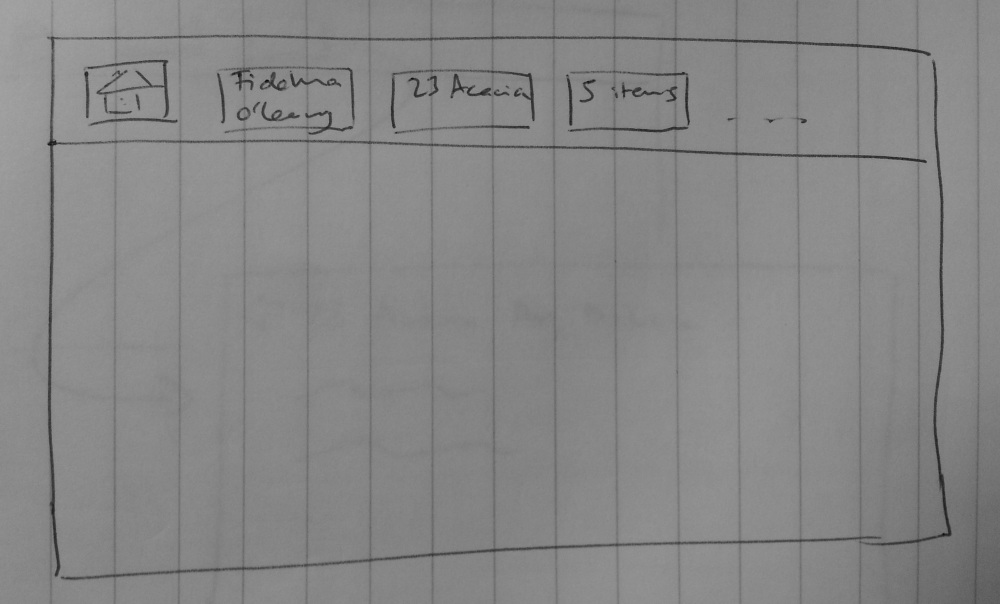 Fidelma
O'Leary
23 Acacia
5 items